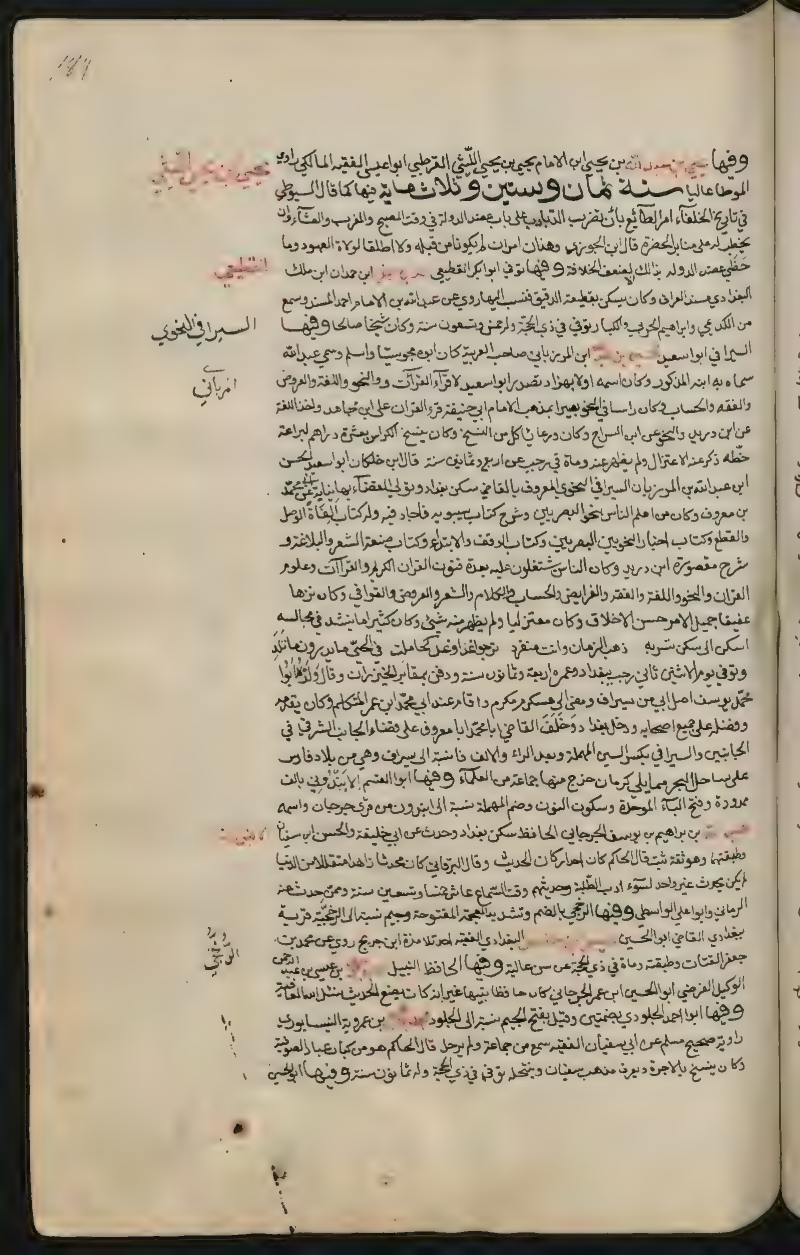 وفيها يحيى بن عبد الله بن يحيى ابن الامام يحيى بن يحيى الليثي القرطبي ابوا عيسى الفقيه المالكي راوي
الموطا عاليا سنة ثمان وستين وثلاثماية فيها كما قال السيوطي
في تاريخ الخلفاء امر الطائع بان تضرب الدبادب على باب عضد الدولة في وقت الصبح والمغرب والعشاء وان
يخطب له على منابر الحضرة قال ابن الجوزي وهذان امران لم يكونا من قبله ولا اطلقا لولاة العهود وما
حظي عضد الدولة بذالك الا لضعف الخلافة وفيها توفي ابوا بكر القطيعي احمد بن جعفر ابن حمدان ابن مالك
البغدادي مسند العراق وكان يسكن بقطيعة الدقيق فنسب اليها روى عن عبد الله بن الامام احمد المسند وسمع
من الكديمي وابراهيم الحربي والكبار توفي في ذي الحجة وله خمس وتسعون سنة وكان شيخا صالحا وفيها
السيرافي ابوا سعيد الحسن بن عبد الله ابن المرزباني صاحب العربية كان ابوه مجوسيا واسلم وسمي عبد الله
سماه به ابنه المذكور وكان اسمه اولا بهزاد تصدر ابوا سعيد لاقراء القراآت والنحو واللغة والعروض
والفقه والحساب وكان راسا في النحو بصيرا بمذهب الامام ابي حنيفة قرء القران على ابن مجاهد واخذ اللغة
عن ابن دريد والنحو عن ابن السراج وكان ورعا ياكل من النسخ وكان ينسخ الكراس بعشرة دراهم لبراعة
خطه ذكر عنه الاعتزال ولم يظهر عنه ومات في رجب عن اربع وثمانين سنة قال ابن خلكان ابوا سعيد الحسن
ابن عبد الله بن المرزبان السيرافي النحوي المعروف بالقاضي سكن بغداد وتولى القضاء بها نيابة عن ابي محمد
بن معروف وكان من اعلم الناس بنحو البصريين وشرح كتاب سيبويه فاجاد فيه وله كتاب الفاة الوصل
والقطع وكتاب اخبار النحويين البصريين وكتاب الوقف والابتداء وكتاب صنعة الشعر والبلاغة و
شرح مقصورة ابن دريد وكان الناس يشتغلون عليه بعدة فنون القران الكريم والقراآت وعلوم
القران والنحو واللغة والفقه والفرايض والحساب والكلام والشعر والعروض والقوافي وكان نزها
عفيفا جميل الامر حسن الاخلاق وكان معتزليا ولم يظهر منه شيء وكان كثيرا ما ينشد في مجالسه
اسكن الى سكن تسر به ذهب الزمان وانت منفرد ترجوا غدا وغد كحاملة في الحي ما يدرون ما تلد
وتوفي يوم الاثنين ثاني رجب ببغداد وعمره اربعة وثمانون سنة ودفن بمقابر الخيزران وقال ولده ابوا
محمد يوسف اصل ابي من سيراف ومضى الى عسكر مكرم واقام عند ابي محمد ابن عمر المتكلم وكان يقدمه
ويفضله على جميع اصحابه ودخل بغداد وخلف القاضي ابا محمد ابا معروف على قضاء الجانب الشرقي ثم
الجانبين والسيرافي بكسر السين المهملة وبعد الراء والالف فا نسبة الى سيراف وهي من بلاد فارس
على ساحل البحر مما يلي كرمان خرج منها جماعة من العلماء وفيها ابوا القسم الابندوني بالف
ممدودة وفتح الباء الموحدة وسكون النون وضم المهملة نسبة الى ابندون من قرى جرجان واسمه
عبد الله بن ابراهيم بن يوسف الجرجاني الحافظ سكن بغداد وحدث عن ابي خليفة والحسن ابن سفيان
وطبقتهما وهو ثقة ثبت قال الحاكم كان احد اركان الحديث وقال البرقاني كان محدثا زاهدا متقللا من الدنيا
لم يكن يحدث غير واحد لسوء ادب الطلبة وحديثهم وقت السماع عاش خمسا وتسعين سنة وممن حدث عنه
الرماني وابوا على الواسطي وفيها الرخجي بالضم وتشديد المعجمة المفتوحة وجيم نسبة الى الرخجية قرية
ببغداد القاضي ابوا الحسين البغدادي الفقيه احد تلامذة ابن جرير روى عن محمد بن
جعفر القتات وطبقته ومات في ذي الحجة عن سن عالية وفيها الحافظ النبيل بن عيسى بن عبد الرحمن
الوكيل الفرضي ابوا الحسين ابن عمر الجرجاني كان حافظا نبيها غير انه كان يضع الحديث نسال الله العافية
وفيها ابوا احمد الجلودي بضمتين وقيل بفتح الجيم نسبة الى الجلود محمد بن عيسى بن عمروية النيسابوري
راوية صحيح مسلم عن ابي سفيان الفقيه سمع من جماعة ولم يرحل قال الحاكم هو من كبار عباد الصوفية
وكان ينسخ بالاجرة ويعرف مذهب سفيان وينتحله توفي في ذي الحجة وله ثمانون سنة وفيها ابوا الحسين
يحيى بن يحيى الليثي
القطيعي
السيرافي النحوي